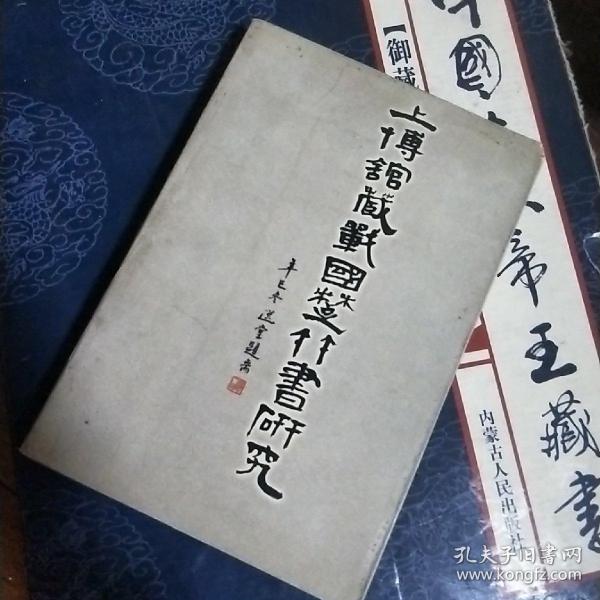 上博館藏戰國楚竹書研究
辛巳冬選堂題耑
中國
帝王藏書
【御藏
内蒙古人民出版社
孔夫子旧书网
www.kongfz.com